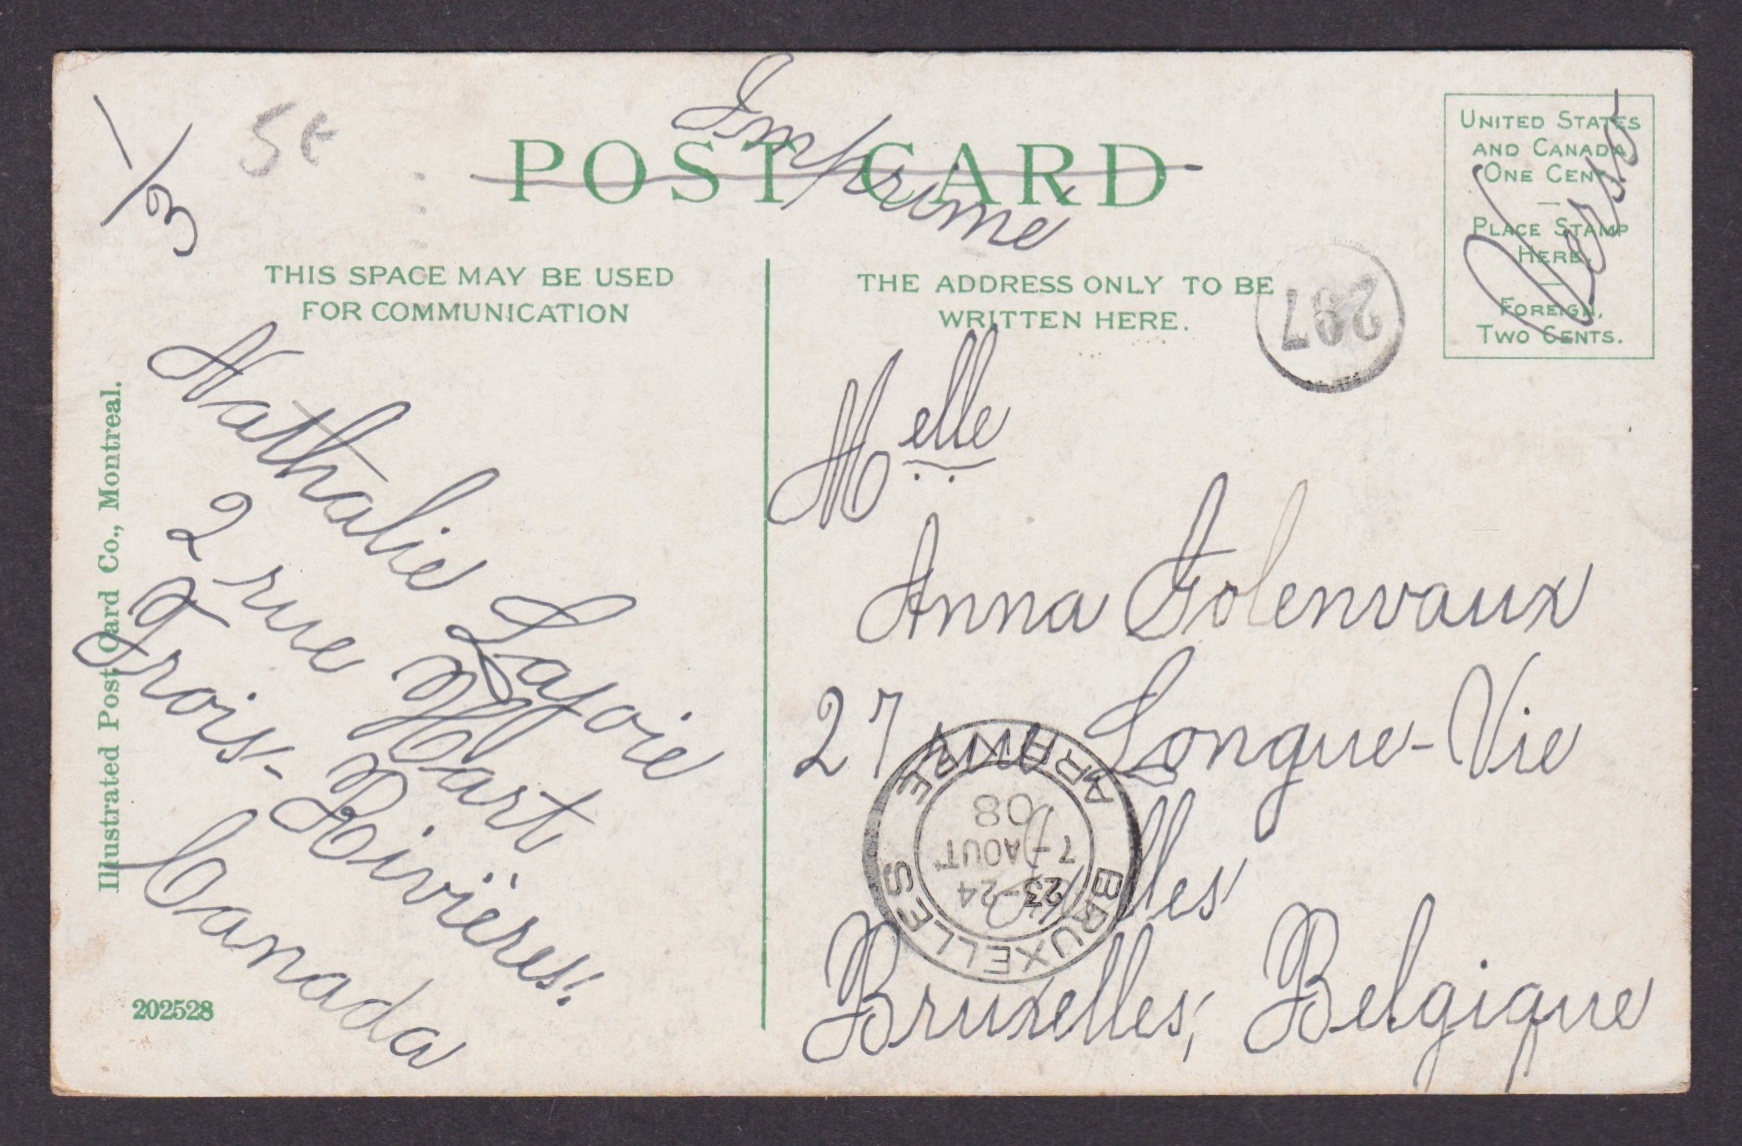 Imprimé
POST CARD
5¢
THIS SPACE MAY BE USED
FOR COMMUNICATION
THE ADDRESS ONLY TO BE
WRITTEN HERE.
UNITED STATES
AND CANADA
ONE CENT
—
PLACE STAMP
HERE.
—
FOREIGN,
TWO CENTS.
Verso
207
Nathalie Lajoie
2 rue Hart
Trois-Rivières.
Canada
Melle
Anna Folenvaux
27 rue Longue-Vie
Ixelles
Bruxelles, Belgique
BRUXELLES
ARRIVEE
23-24
7 AOUT
08
Illustrated Post Card Co., Montreal.
202528